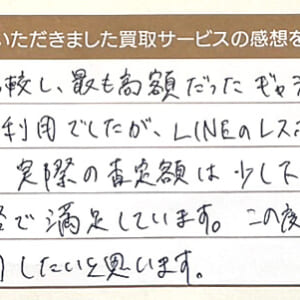 いただきました買取サービスの感想を
較し、最も高額だったギャラ
利用でしたが、LINEのレス
実際の査定額は少し下
で満足しています。この度
したいと思います。